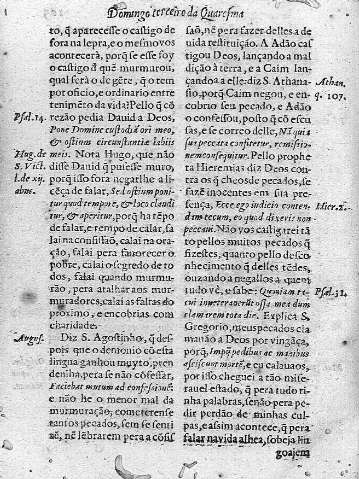 Domingo terceiro da Quaresma
ro, q̃ aparecesse o castigo de
fora na lepra, e o mesmo vos
acontecerà, porq̃ se esse foy
o castigo d' quẽ murmurou,
qual serà o de gẽte, q̃ o tem
por oficio, e ordinario entre
tenimẽto da vida? Pello q̃ cõ
Psal.14.
razão pedia Dauid a Deos,
Pone Domine custodiã ori meo,
& ostium circunstantiæ labiis
Hug. de
meis. Nota Hugo, que não
S. Vict.
disse Dauid q̃ pusesse muro,
porq̃ isso fora negarlhe a li-
cẽça de falar, Sed ostium poni-
tur quod tempore, & loco claudi
tur, & aperitur, porq̃ ha tẽpo
de falar, e tempo de calar, fa
lai na confissão, calai na ora-
ção, falai pera fauorecer o
pobre, calai o segredo de to
dos, falai quando murmu-
rão, pera atalhar aos mur-
muradores, calai as faltas do
proximo, e encobrias com
charidade.
Augus.
Diz S. Agostinho, q̃ des-
pois que o demonio cõ esta
lingua ganhou muyto, pren
denisha, pera se não cõfessar,
Faciebat mutum ad confessionẽ:
e não he o menor mal da
murmuração, cometerense
tantos pecados, sem se senti
rẽ, nẽ lẽbrarem pera a cõfis
saõ, nẽ pera fazer delles a de
vida restituição. A Adão cas
tigou Deos, lançando a mal
dição à terra, e a Caim lan-
çandoa a elle: diz S. Athana-
Athan.
sio, porq̃ Caim negou, e en-
q. 107.
cobrio seu pecado, e Adão
o confessou, posto q̃ cõ escu
sas, e se correo delle, Nisi quis
sua peccata confitetur, remissio-
nem consequitur. Pello pro
pheta Hieremias diz Deos con-
tra os q̃ cheos de pecados, se
fazẽ innocentes em sua pre-
sença, Ecce ego iudicio conten-
Hier. 2.
dam tecum, eo quod dixeris non
peccaui. Não vos castig
to pellos muitos pecados q̃
fizestes, quanto pello des co
nhecimento q̃ delles tẽdes,
ouzando a negallos a quem
tudo vè, e sabe: Quoniam ta-
Psal.31.
cui inueterauerũt ossa mea dum
clamarem tota die. Explica S.
Gregorio, meus pecados cla
mauão a Deos por vingãça,
porq̃, e eu calauaos,
por isso cheguei a tão mise-
rauel estado, q̃ pera tudo ri-
nha palauras, senão pera pe-
dir perdão de minhas cul-
pas, e assim acontece, q̃ pera
falar na vida alhea, sobeja lin
goajem